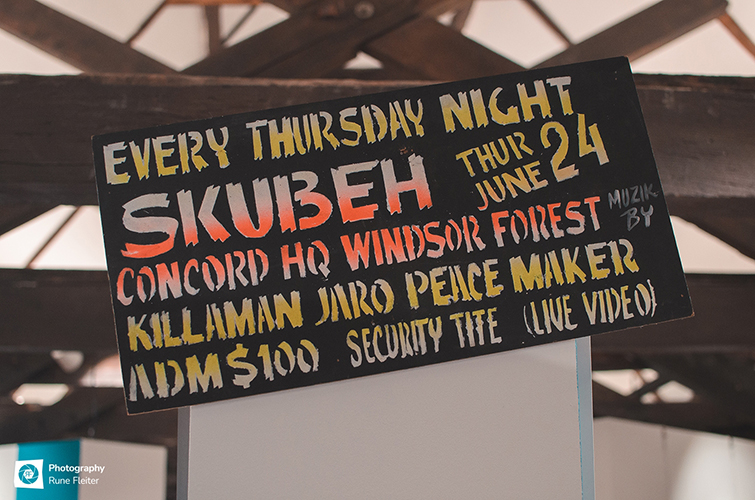 EVERY THURSDAY NIGHT
SKUBEH THUR JUNE 24
CONCORD HQ WINDSOR FOREST MUZIK BY
KILLAMAN JARO PEACE MAKER
ADM $100 SECURITY TITE (LIVE VIDEO)
Photography
Rune Fleiter